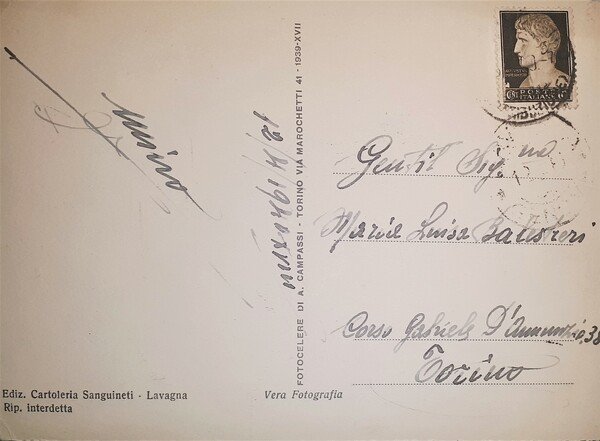 POSTE
ITALIANE
Gentil Sig.na
Maria Luisa Balestreri
Corso Gabriele D'Annunzio, 38
Torino
FOTOCELERE DI A. CAMPASSI - TORINO VIA MAROCHETTI 41 - 1939-XVII
Ediz. Cartoleria Sanguineti - Lavagna
Rip. interdetta
Vera Fotografia